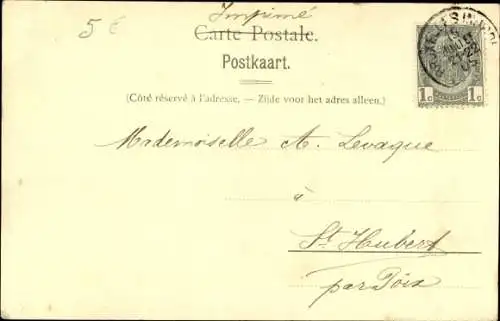 Imprimé
5 €
Carte Postale.
Postkaart.
(Côté réservé à l'adresse. — Zijde voor het adres alleen.)
Mademoiselle A. Levaque
à
St Hubert
par Poix
1c 1c